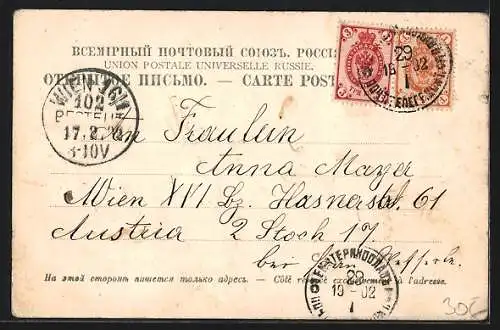 ВСЕМІРНЫЙ ПОЧТОВЫЙ СОЮЗЪ. РОССІ
UNION POSTALE UNIVERSELLE RUSSIE.
ОТКРЫТОЕ ПИСЬМО. — CARTE POST
WIEN 16/1
102
BESTELLT
17.2.
29
02
1
An Fraulein
Anna Mayer
Wien XVI Bz. Hasnerstr. 61
Austria 2 Stock 17
bei
На этой сторонѣ пишется только адресъ. — Côté réservé exclusivement à l'adresse.
29
19-02
1
30€